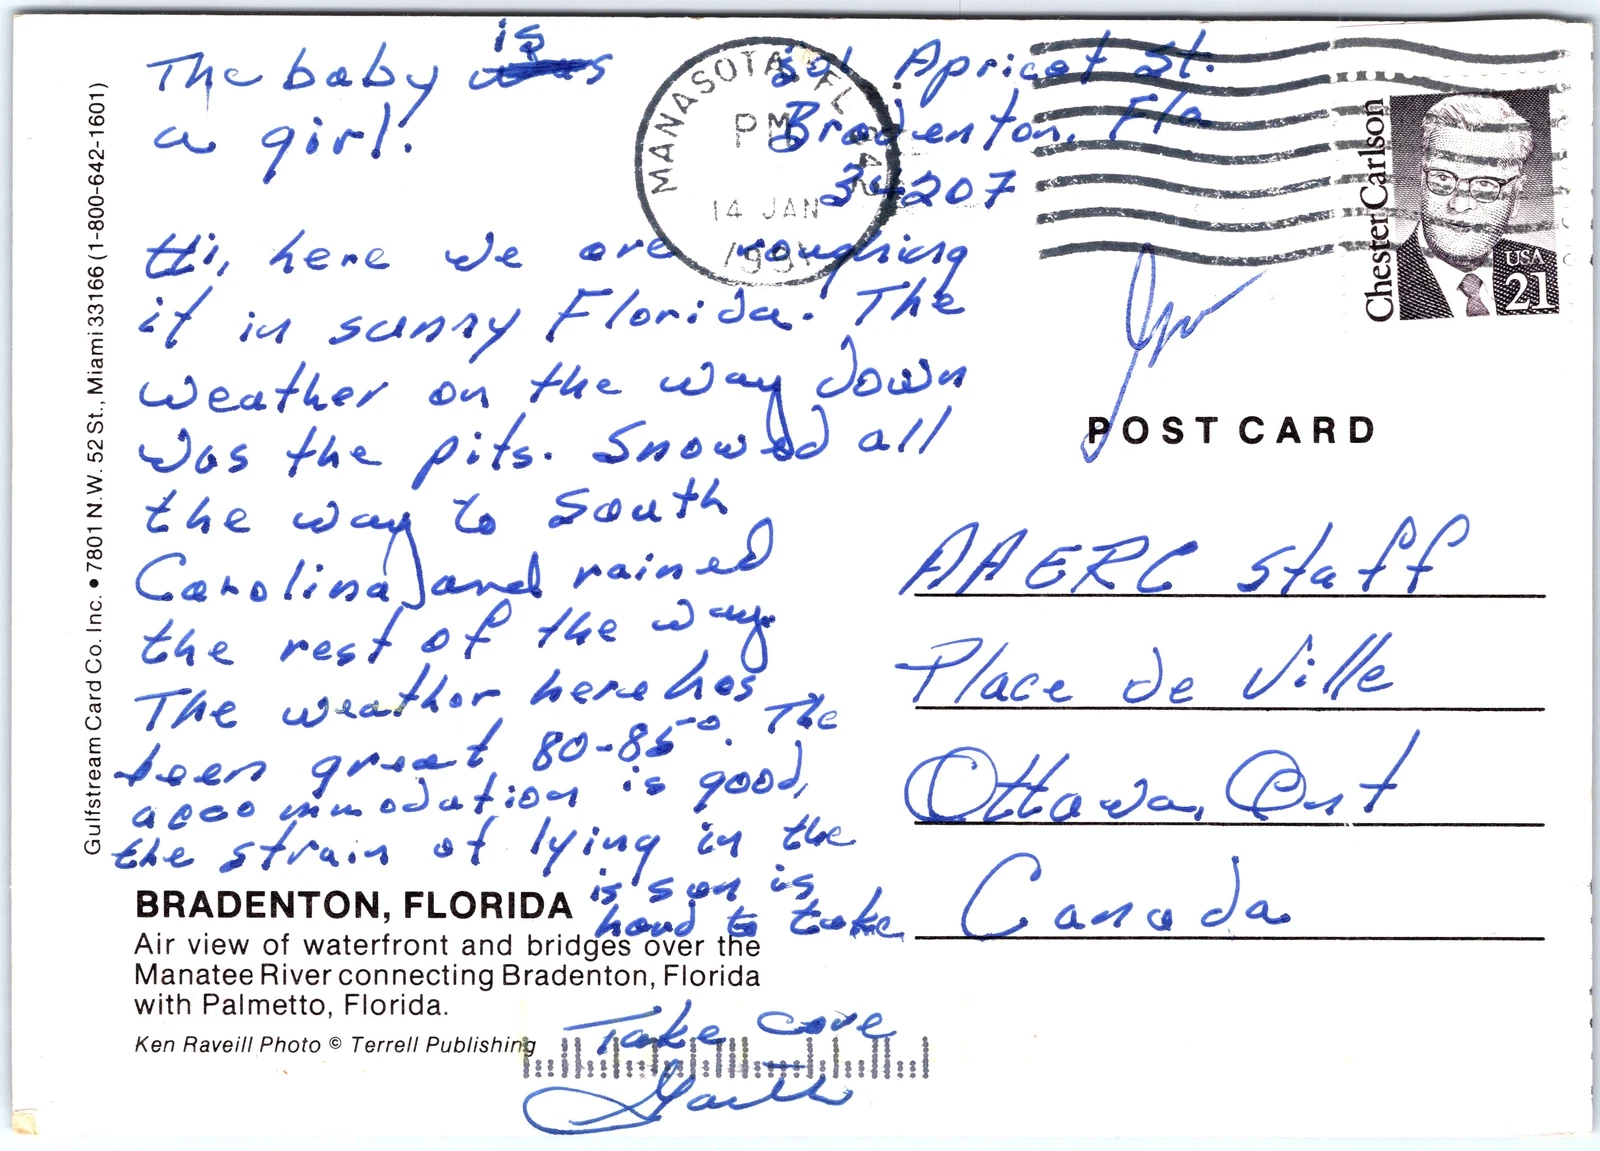 The baby is was
a girl.
Apricot St.
Bradenton, Fla
34207
MANASOTA, FL
PM
14 JAN
Chester Carlson
USA
21
Hi, here we are roughing
it in sunny Florida. The
weather on the way down
was the pits. Snowed all
the way to South
Carolina and rained
the rest of the way.
The weather here has
been great 80-85°. The
accommodation is good,
the strain of lying in the
is sun is
hard to take
Take care
POST CARD
AAERC Staff
Place de Ville
Ottawa, Ont
Canada
BRADENTON, FLORIDA
Air view of waterfront and bridges over the
Manatee River connecting Bradenton, Florida
with Palmetto, Florida.
Ken Raveill Photo © Terrell Publishing
Gulfstream Card Co. Inc. • 7801 N.W. 52 St., Miami 33166 (1-800-642-1601)